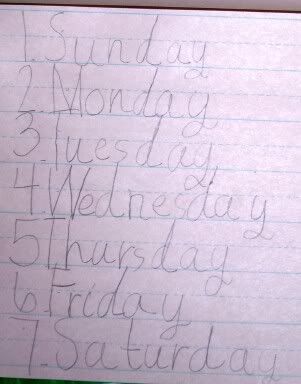 1. Sunday
2. Monday
3. Tuesday
4. Wednesday
5 Thursday
6. Friday
7. Saturday